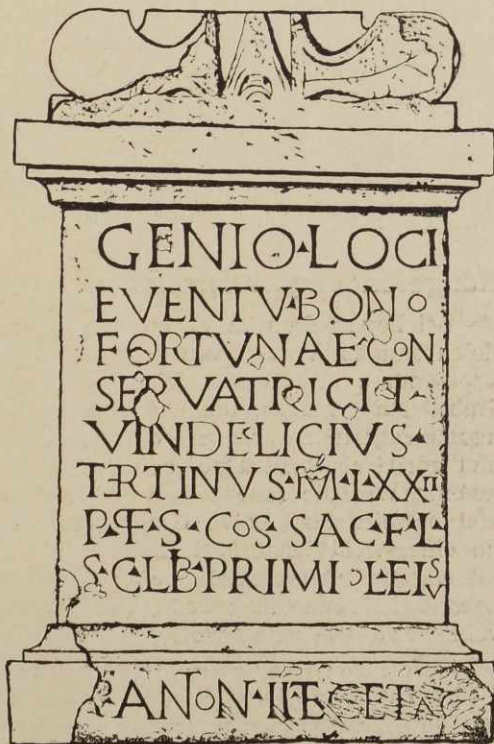 GENIO·LOCI
EVENTV·BONO
FORTVNAE·CON
SERVATRICI·T·
VINDELICIVS·
TERTINVS·MI·L·XXII
P·F·S·COS·SAC·F·L·
S·CL·B·PRIMI·Ɔ·LEI SV
ANON·II